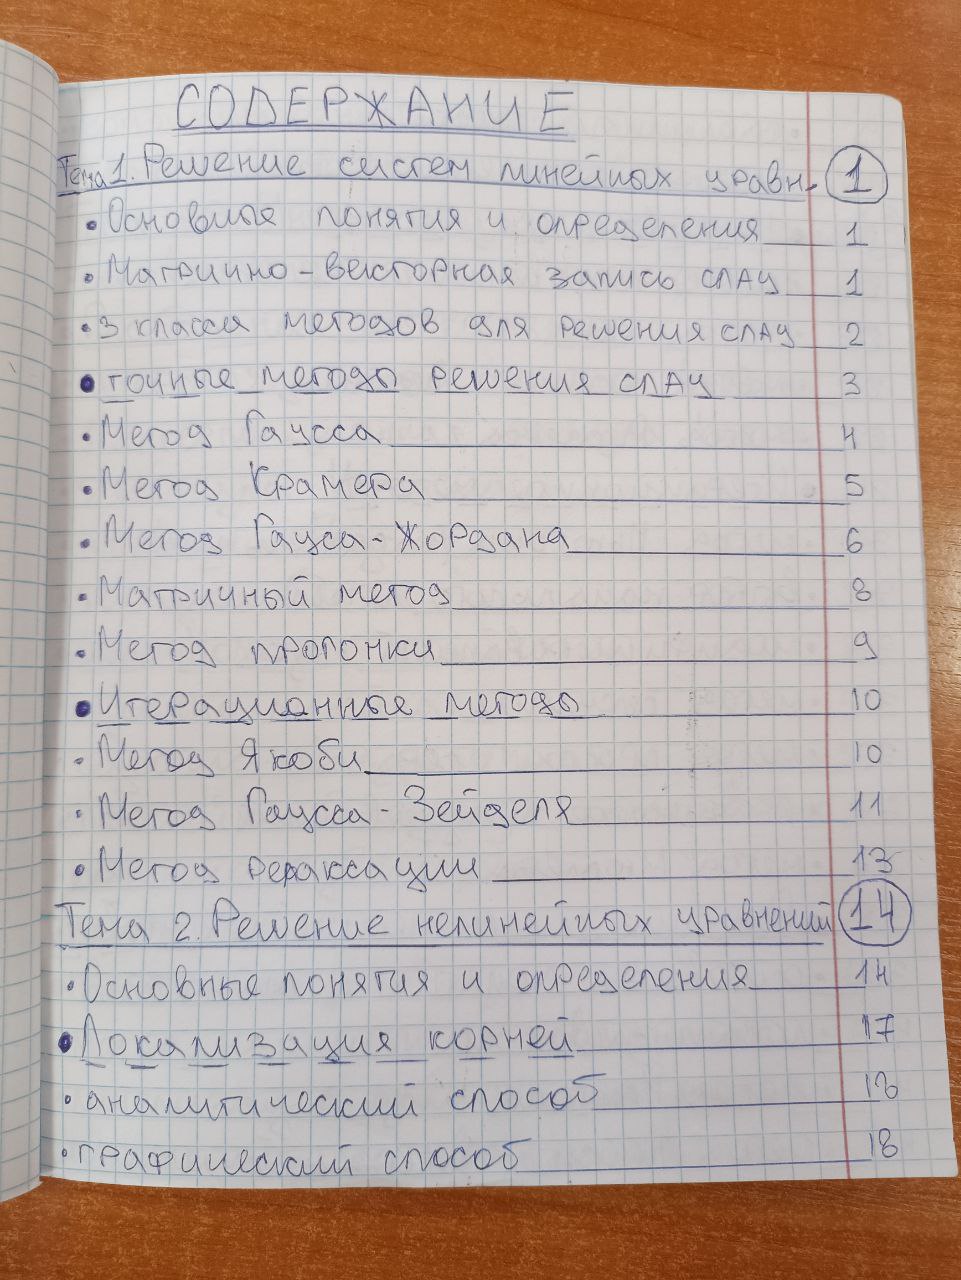 СОДЕРЖАНИЕ
Тема 1. Решение систем линейных уравн. 1
• Основные понятия и определения 1
• Матрично-векторная запись СЛАУ 1
• 3 класса методов для решения СЛАУ 2
• точные методы решения СЛАУ 3
• Метод Гаусса 4
• Метод Крамера 5
• Метод Гауса-Жордана 6
• Матричный метод 8
• Метод прогонки 9
• Итерационные методы 10
• Метод Якоби 10
• Метод Гаусса-Зейделя 11
• Метод релаксации 13
Тема 2. Решение нелинейных уравнений 14
• Основные понятия и определения 14
• Локализация корней 17
• аналитический способ 18
• графический способ 18